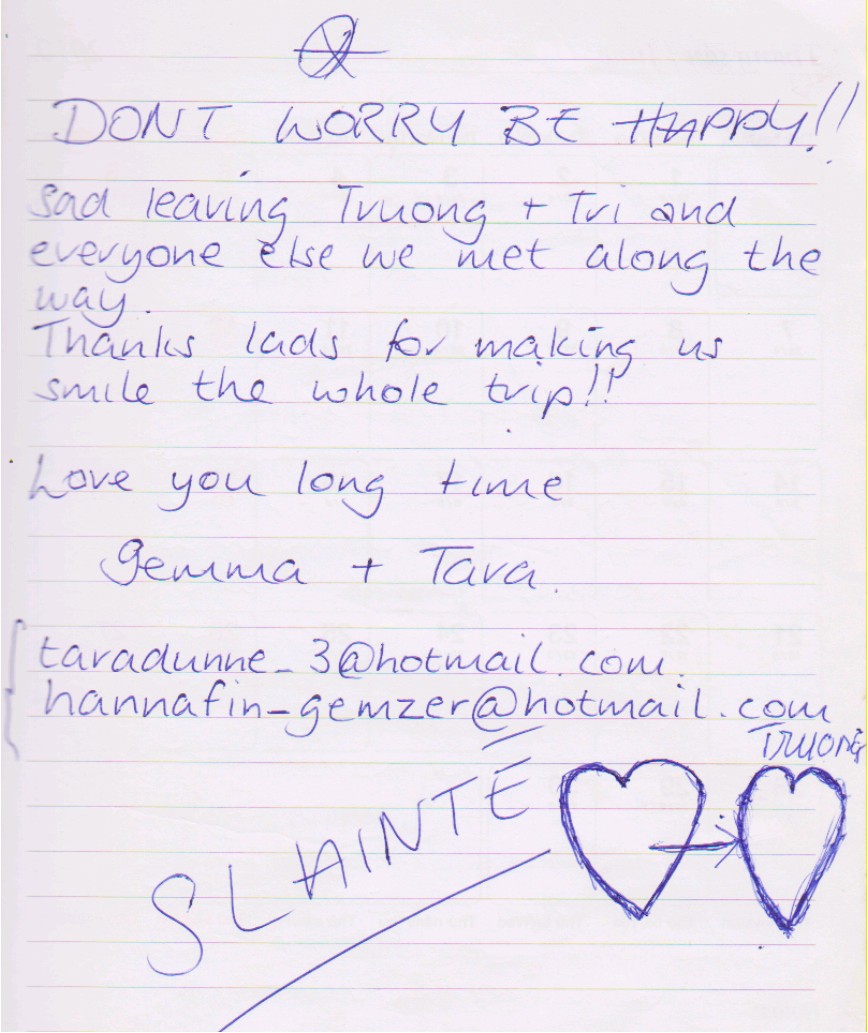 DONT WORRY BE HAPPY!!
Sad leaving Truong + Tri and
everyone else we met along the
way.
Thanks lads for making us
smile the whole trip!!
Love you long time
Gemma + Tara.
taradunne_3@hotmail.com.
hannafin_gemzer@hotmail.com
Truong
SLAINTÉ